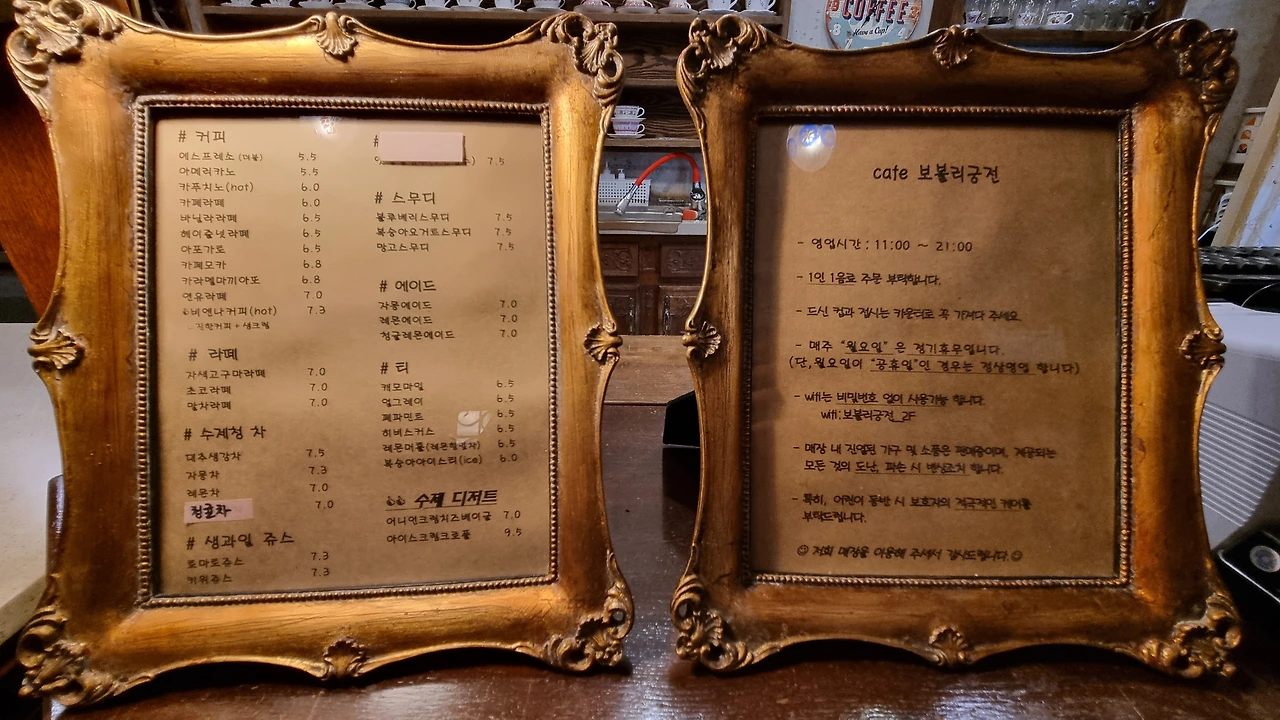 COFFEE
Have a Cup!
# 커피
에스프레소 (더블) 5.5
아메리카노 5.5
카푸치노(hot) 6.0
카페라떼 6.0
바닐라라떼 6.5
헤이즐넛라떼 6.5
아포가토 6.5
카페모카 6.8
카라멜마끼아또 6.8
연유라떼 7.0
비엔나커피(hot) 7.3
진한커피 + 생크림
# 라떼
자색고구마라떼 7.0
초코라떼 7.0
말차라떼 7.0
# 수제청 차
대추생강차 7.5
자몽차 7.3
레몬차 7.0
청귤차 7.0
# 생과일 쥬스
토마토쥬스 7.3
키위쥬스 7.3
#
7.5
# 스무디
블루베리스무디 7.5
복숭아요거트스무디 7.5
망고스무디 7.5
# 에이드
자몽에이드 7.0
레몬에이드 7.0
청귤레몬에이드 7.0
# 티
캐모마일 6.5
얼그레이 6.5
페퍼민트 6.5
히비스커스 6.5
레몬머틀(레몬허브차) 6.5
복숭아아이스티(ice) 6.0
수제 디저트
어니언크림치즈베이글 7.0
아이스크림크로플 9.5
cafe 보볼리궁전
- 영업시간 : 11:00 ~ 21:00
- 1인 1음료 주문 부탁합니다.
- 드신 컵과 접시는 카운터로 꼭 가져다 주세요
- 매주 "월요일" 은 정기휴무입니다.
(단, 월요일이 "공휴일"인 경우는 정상영업 합니다)
- wifi는 비밀번호 없이 사용가능 합니다.
wifi:보볼리궁전_2F
- 매장 내 진열된 가구 및 소품은 판매중이며, 제공되는
모든 것의 도난, 파손 시 배상조치 합니다.
- 특히, 어린이 동반 시 보호자의 적극적인 케어를
부탁드립니다.
☺ 저희 매장을 이용해 주셔서 감사드립니다. ☺